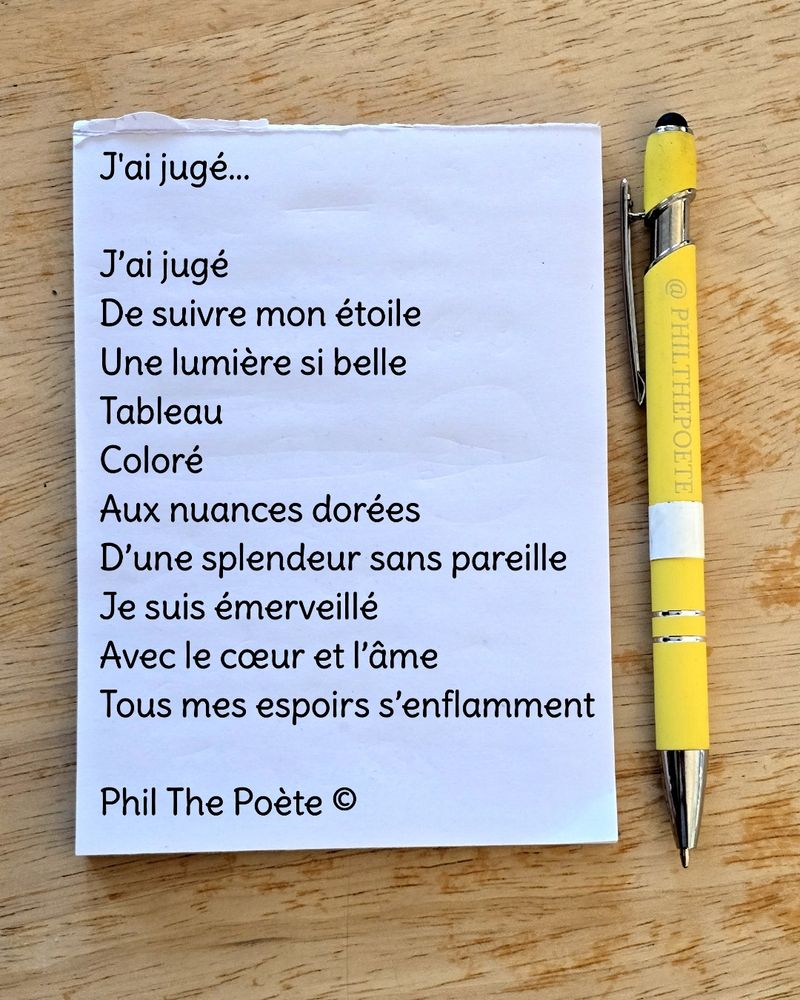 J'ai jugé...
J’ai jugé
De suivre mon étoile
Une lumière si belle
Tableau
Coloré
Aux nuances dorées
D’une splendeur sans pareille
Je suis émerveillé
Avec le cœur et l’âme
Tous mes espoirs s’enflamment
Phil The Poète ©
@ PHILTHEPOETE